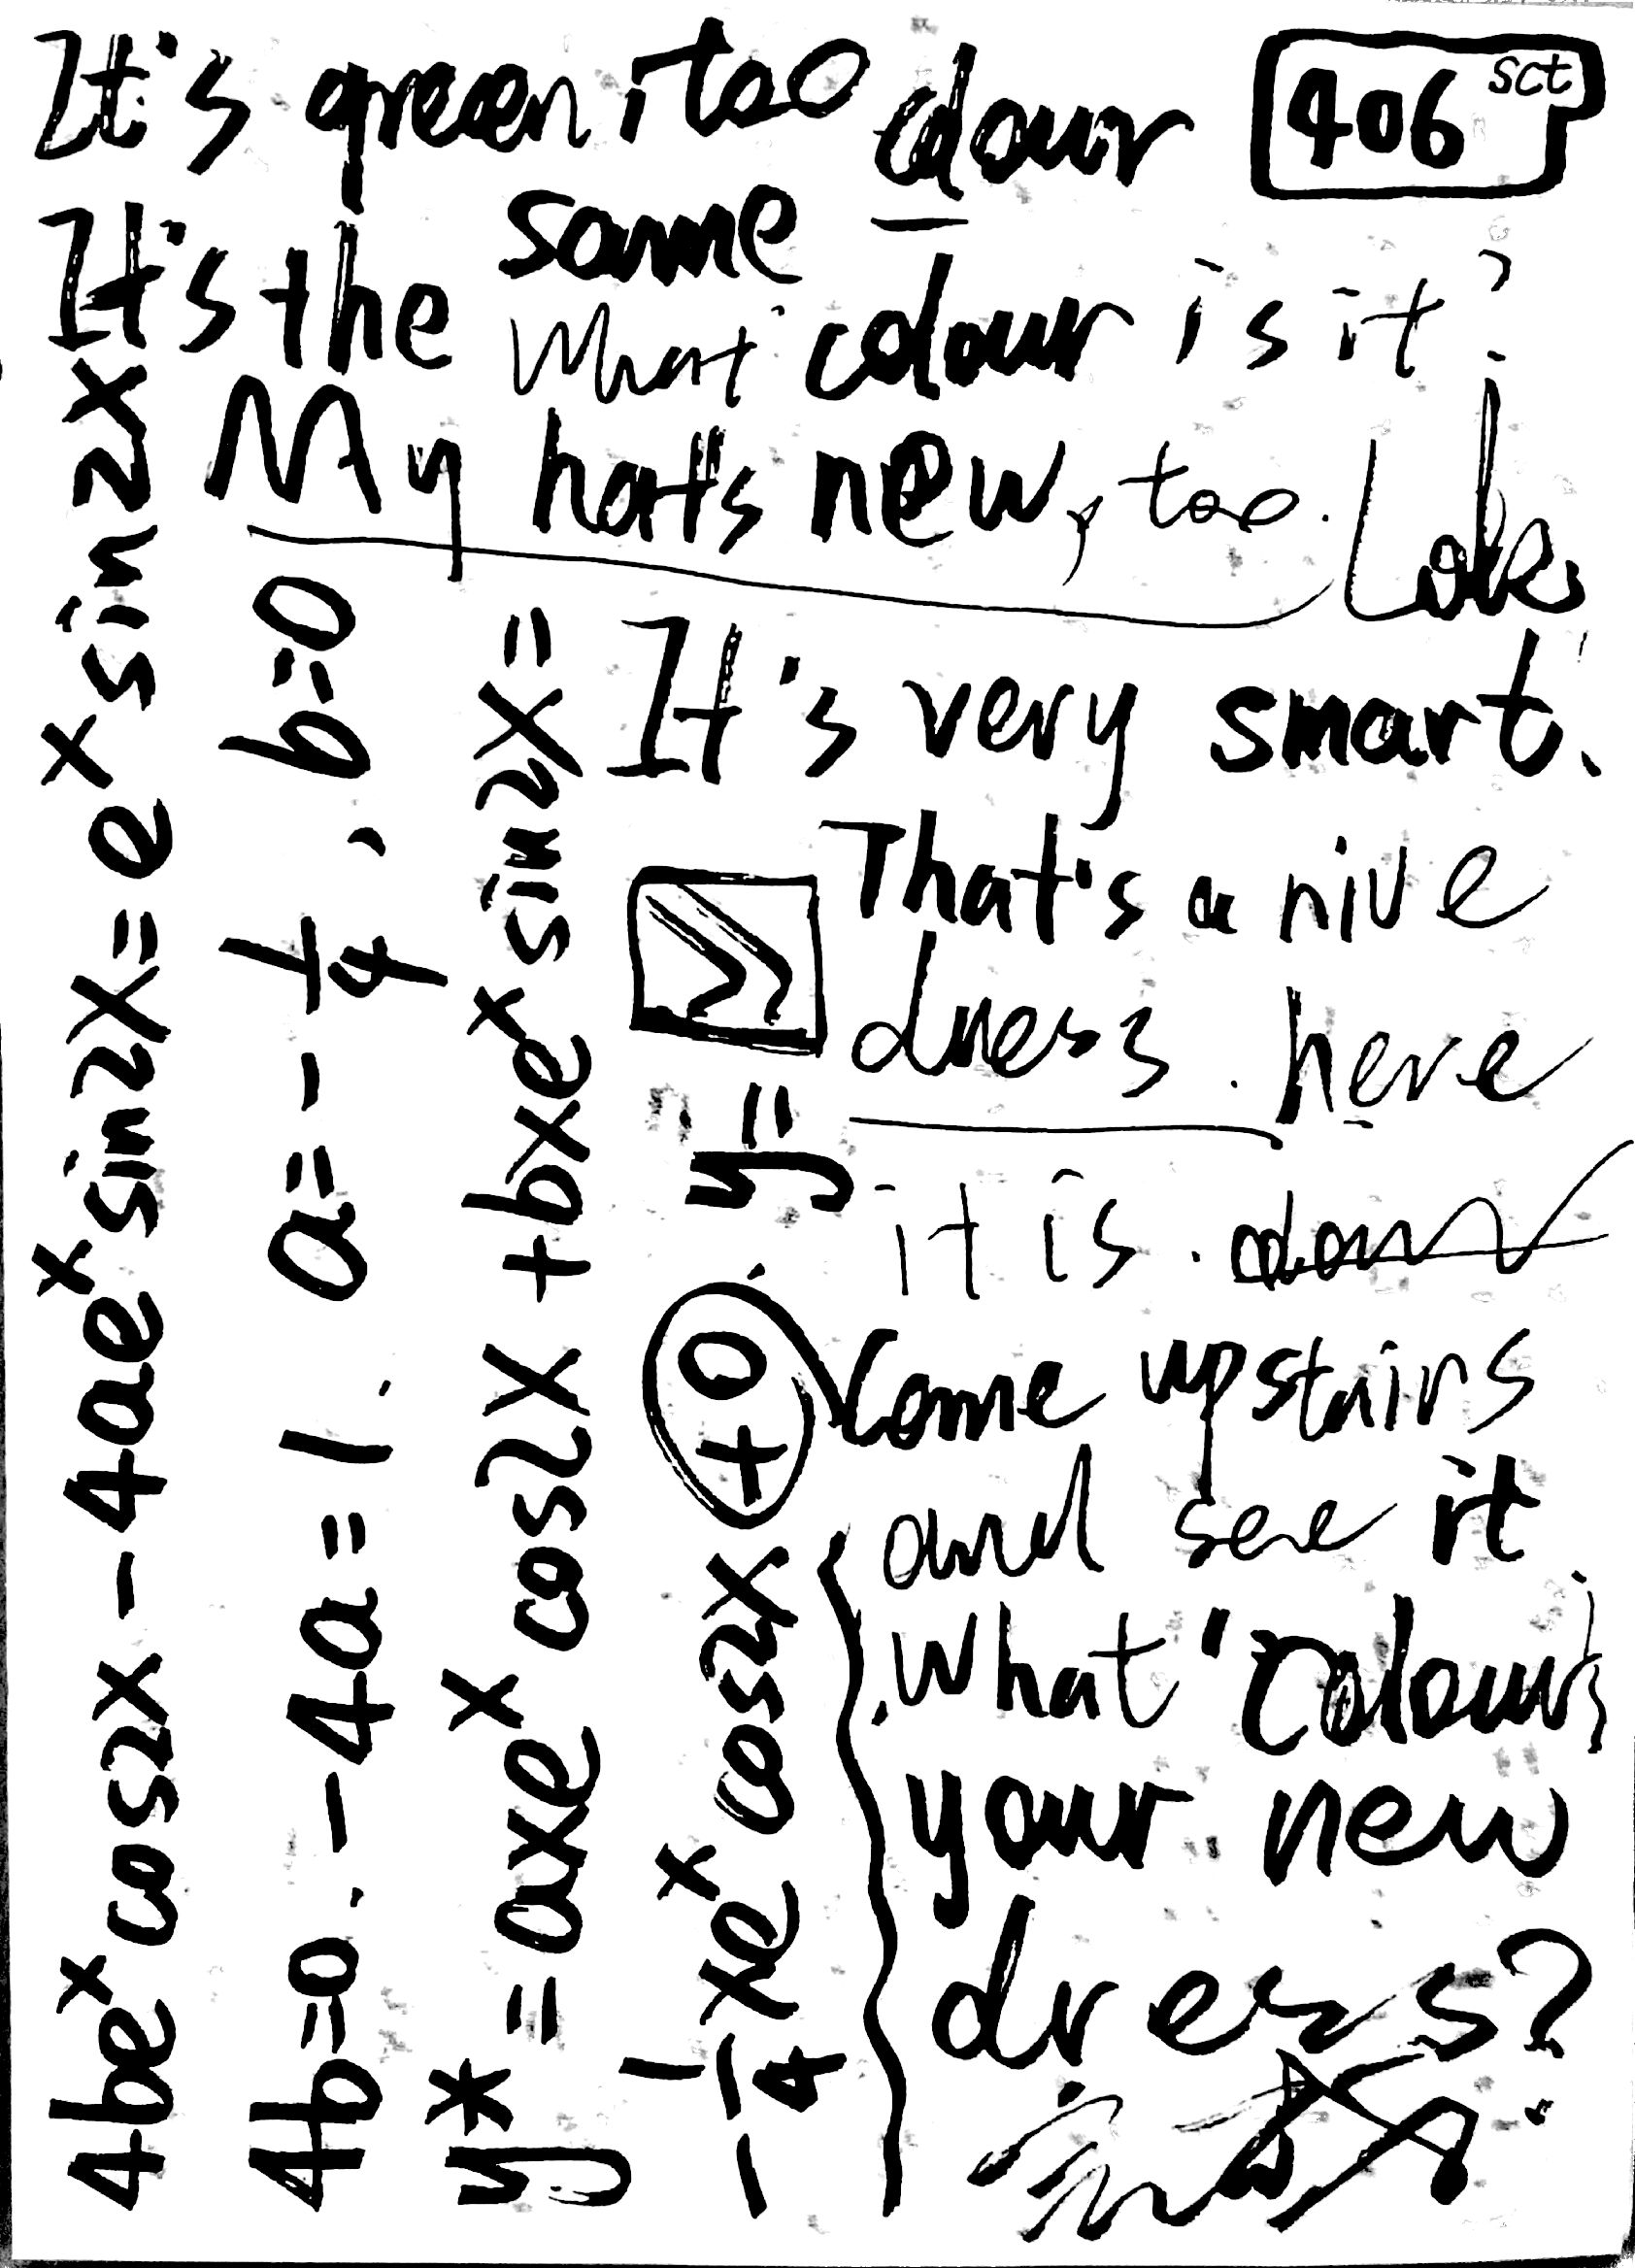 It's green, too colour 406 sct
It's the same
What colour is it?
My hat's new, too. Look,
It's very smart.
That's a nive
dress. here
it is.
Come upstairs
and see it.
What colour's
your new
dress?
4beˣcos2x - 4aeˣsin2x = eˣsin2x
4b=0. -4a=1. a=-1/4, b=0
y* = axeˣcos2x + bxeˣsin2x =
-1/4 xeˣcos2x + 0. y=